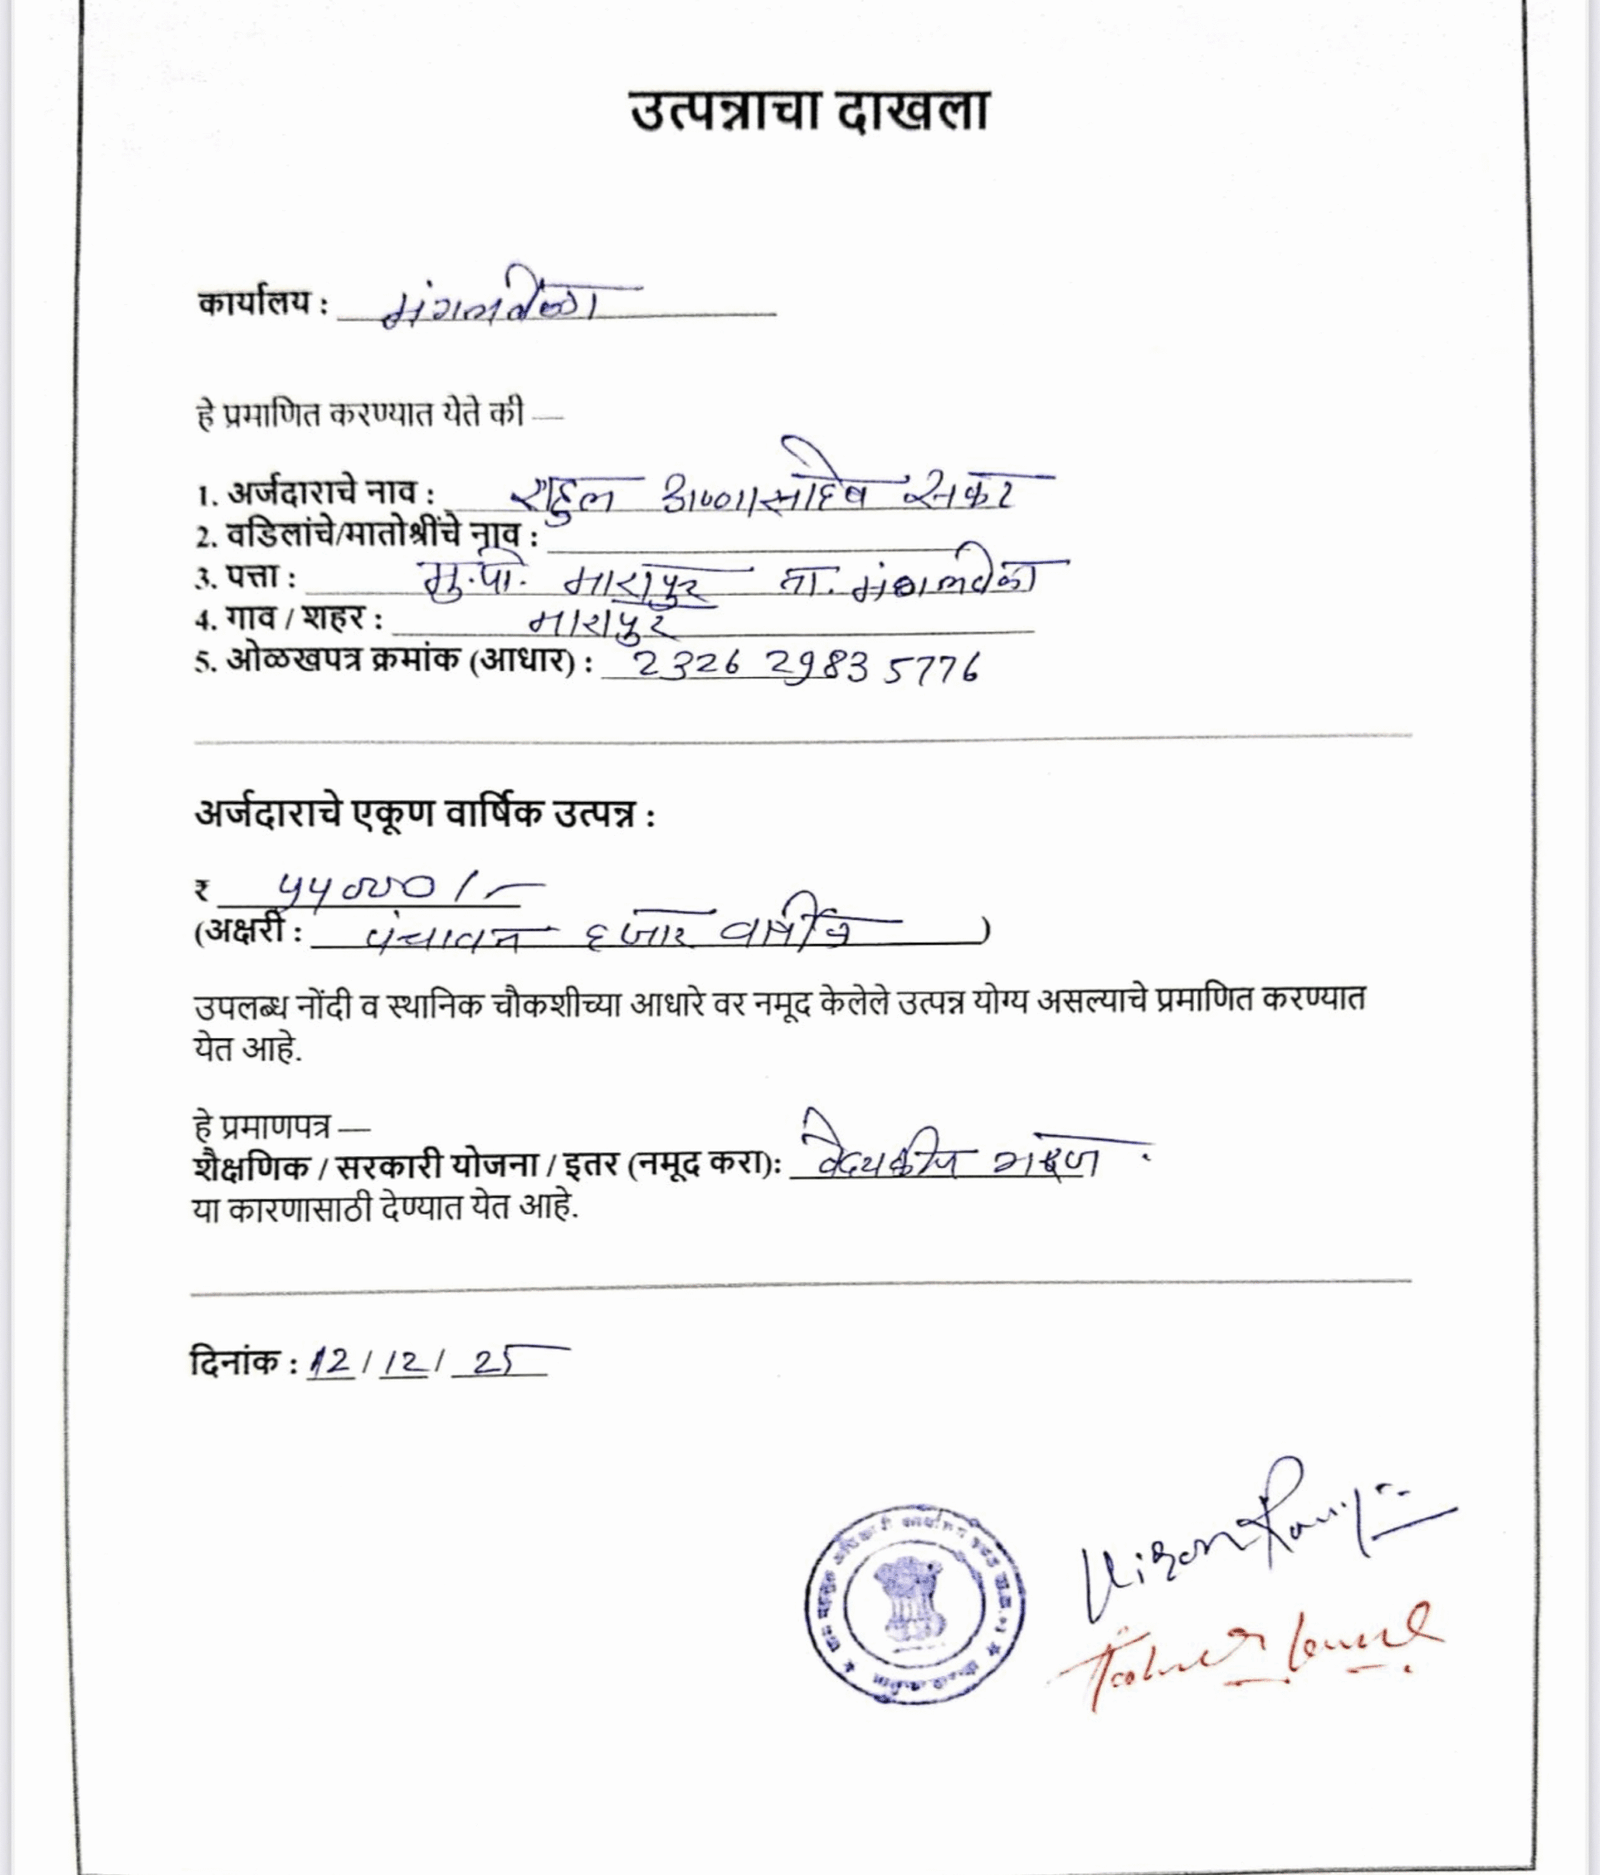 उत्पन्नाचा दाखला
कार्यालय : मंगळवेढा
हे प्रमाणित करण्यात येते की —
1. अर्जदाराचे नाव : राहुल अण्णासाहेब
2. वडिलांचे/मातोश्रींचे नाव :
3. पत्ता : मु.पो. मारापुर ता. मंगळवेढा
4. गाव / शहर : मारापुर
5. ओळखपत्र क्रमांक (आधार) : 2326 2983 5776
अर्जदाराचे एकूण वार्षिक उत्पन्न :
₹ ५५०००/-
(अक्षरी : पंचावन हजार वार्षीक )
उपलब्ध नोंदी व स्थानिक चौकशीच्या आधारे वर नमूद केलेले उत्पन्न योग्य असल्याचे प्रमाणित करण्यात
येत आहे.
हे प्रमाणपत्र —
शैक्षणिक / सरकारी योजना / इतर (नमूद करा): वैद्यकीय
या कारणासाठी देण्यात येत आहे.
दिनांक : 12 / 12 / 25